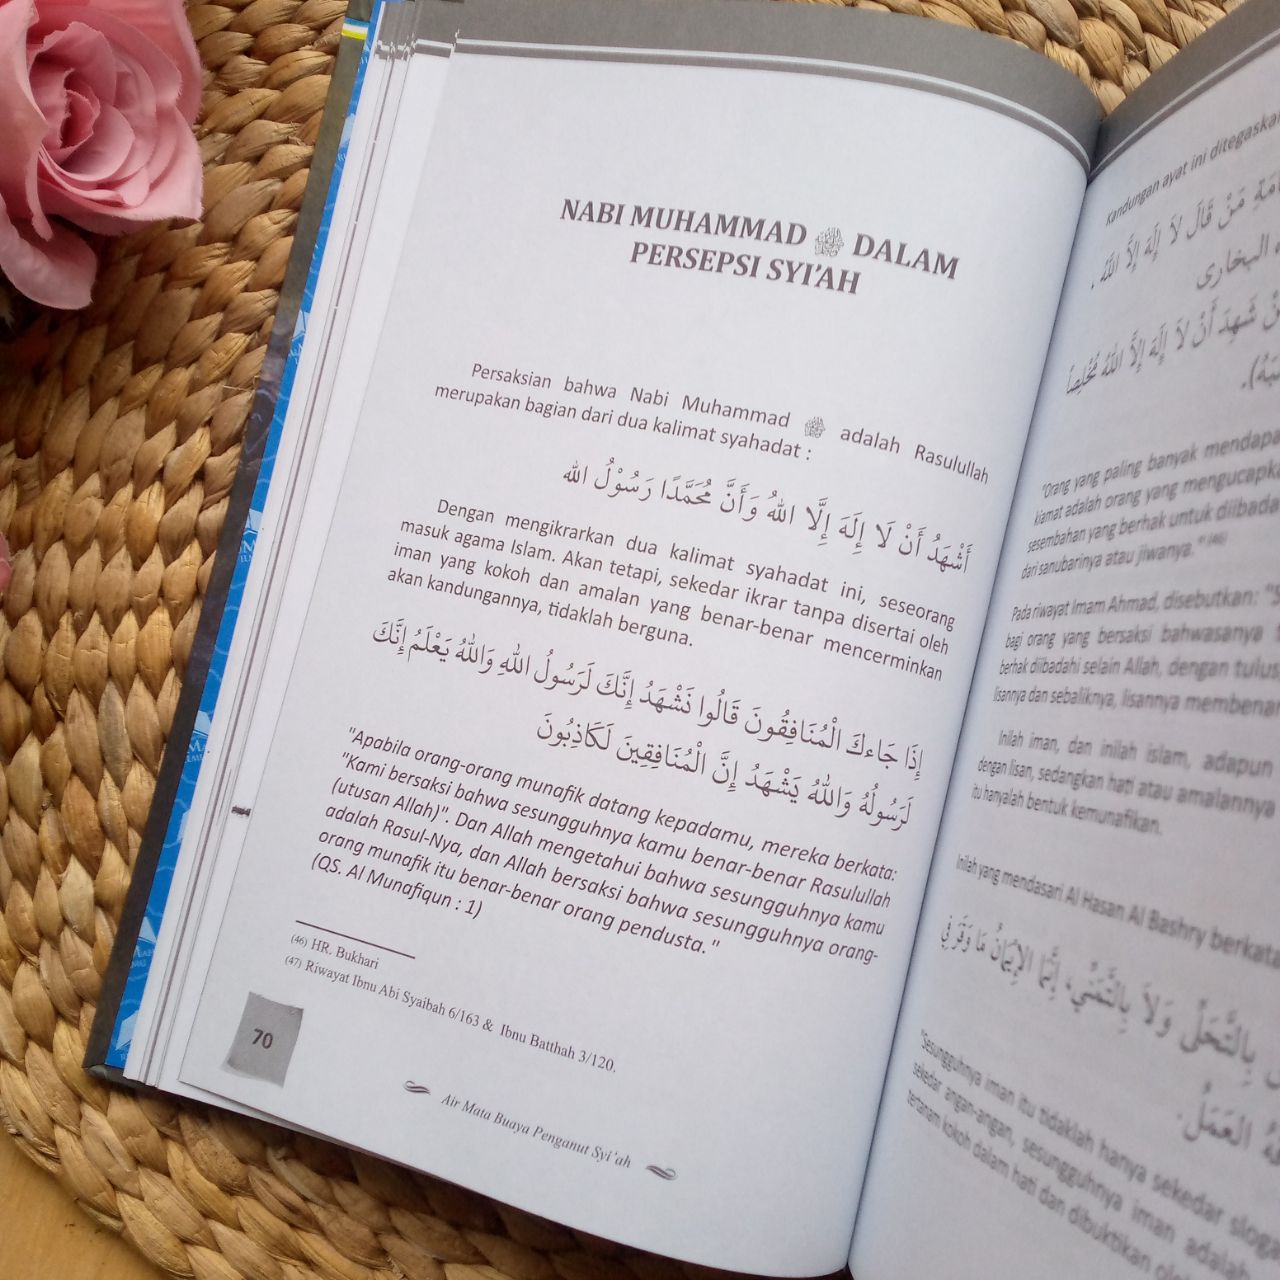 NABI MUHAMMAD ﷺ DALAM
PERSEPSI SYI'AH
Persaksian bahwa Nabi Muhammad ﷺ adalah Rasulullah
merupakan bagian dari dua kalimat syahadat :
أَشْهَدُ أَنْ لَا إِلَهَ إِلَّا اللهُ وَأَنَّ مُحَمَّدًا رَسُوْلُ الله
Dengan mengikrarkan dua kalimat syahadat ini, seseorang
masuk agama Islam. Akan tetapi, sekedar ikrar tanpa disertai oleh
iman yang kokoh dan amalan yang benar-benar mencerminkan
akan kandungannya, tidaklah berguna.
إِذَا جَاءكَ الْمُنَافِقُونَ قَالُوا نَشْهَدُ إِنَّكَ لَرَسُولُ اللهِ وَاللهُ يَعْلَمُ إِنَّكَ
لَرَسُولُهُ وَاللهُ يَشْهَدُ إِنَّ الْمُنَافِقِينَ لَكَاذِبُونَ
"Apabila orang-orang munafik datang kepadamu, mereka berkata:
"Kami bersaksi bahwa sesungguhnya kamu benar-benar Rasulullah
(utusan Allah)". Dan Allah mengetahui bahwa sesungguhnya kamu
adalah Rasul-Nya, dan Allah bersaksi bahwa sesungguhnya orang-
orang munafik itu benar-benar orang pendusta."
(QS. Al Munafiqun : 1)
(46) HR. Bukhari
(47) Riwayat Ibnu Abi Syaibah 6/163 & Ibnu Batthah 3/120.
70
Air Mata Buaya Penganut Syi'ah
Kandungan ayat ini ditegaskan
مَنْ قَالَ لَا إِلَهَ إِلَّا اللهُ
البخارى
شَهِدَ أَنْ لَا إِلَهَ إِلَّا اللهُ مُخْلِصًا
"Orang yang paling banyak
kiamat adalah orang yang
sesembahan yang berhak untuk
dari sanubarinya atau jiwanya." (46)
Pada riwayat Imam Ahmad, disebutkan:
bagi orang yang bersaksi bahwasanya
berhak diibadahi selain Allah, dengan
lisannya dan sebaliknya, lisannya
Inilah iman, dan inilah islam, adapun
dengan lisan, sedangkan hati atau amalannya
itu hanyalah bentuk kemunafikan.
Inilah yang mendasari Al Hasan Al Bashry berkata
بِالتَّحَلِّي وَلَا بِالتَّمَنِّي، إِنَّمَا الإِيْمَانُ مَا وَقَرَ فِي
العَمَلُ
"Sesungguhnya iman itu tidaklah hanya sekedar
sekedar angan-angan, sesungguhnya iman adalah
tertanam kokoh dalam hati dan dibuktikan